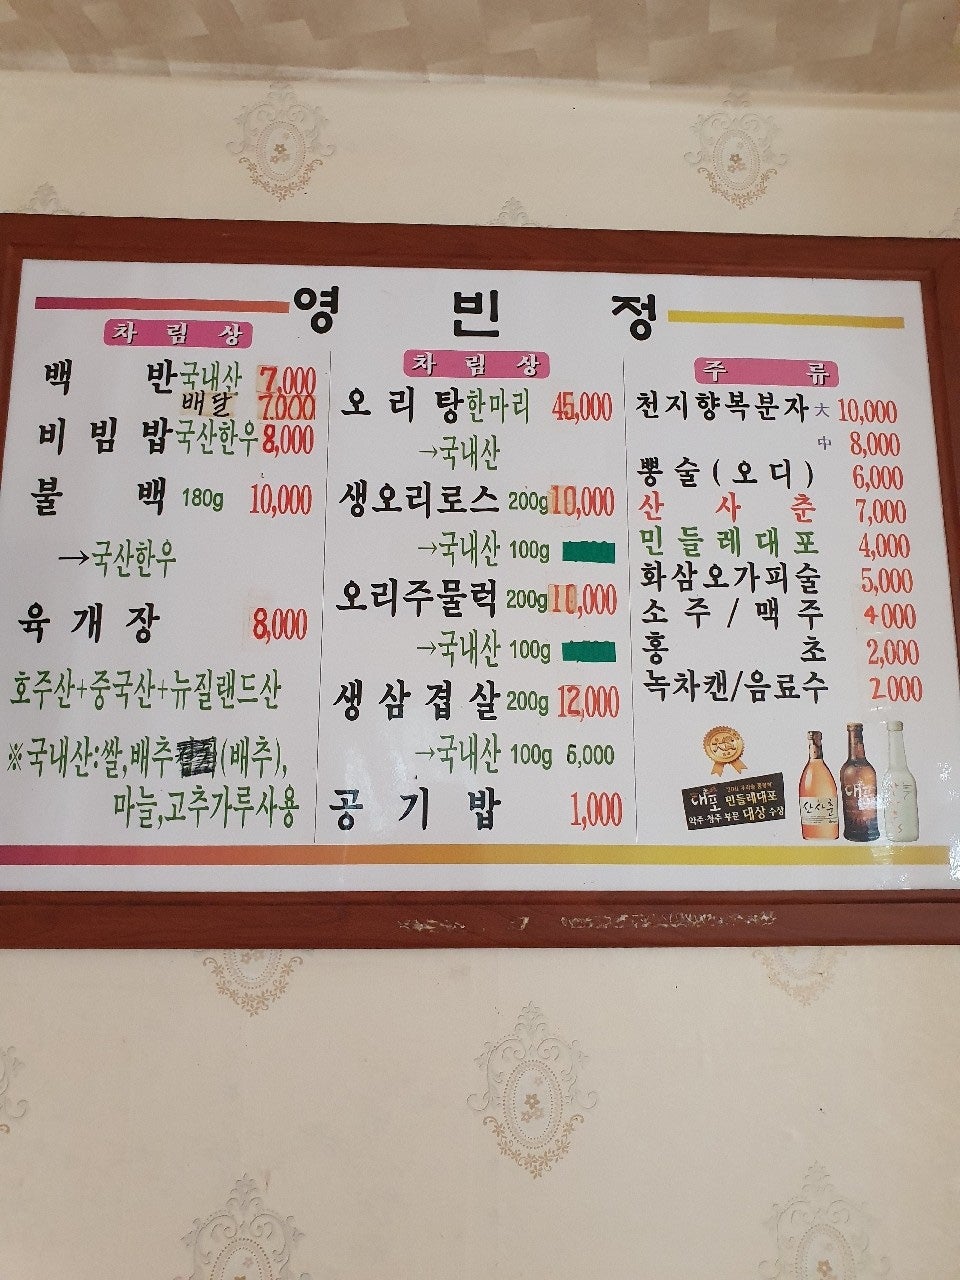 영빈정
차림상
백반 국내산 7,000
배달 7,000
비빔밥 국산한우 8,000
불백 180g 10,000
→국산한우
육개장 8,000
호주산+중국산+뉴질랜드산
※국내산:쌀,배추 (배추),
마늘,고추가루사용
차림상
오리탕 한마리 45,000
→국내산
생오리로스 200g 10,000
→국내산 100g
오리주물럭 200g 10,000
→국내산 100g
생삼겹살 200g 12,000
→국내산 100g 6,000
공기밥 1,000
주류
천지향복분자 大 10,000
中 8,000
뽕술(오디) 6,000
산사춘 7,000
민들레대포 4,000
화삼오가피술 5,000
소주/맥주 4000
홍초 2,000
녹차캔/음료수 2000
대포 민들레대포
약주·청주 부문 대상 수상
산사춘
대포